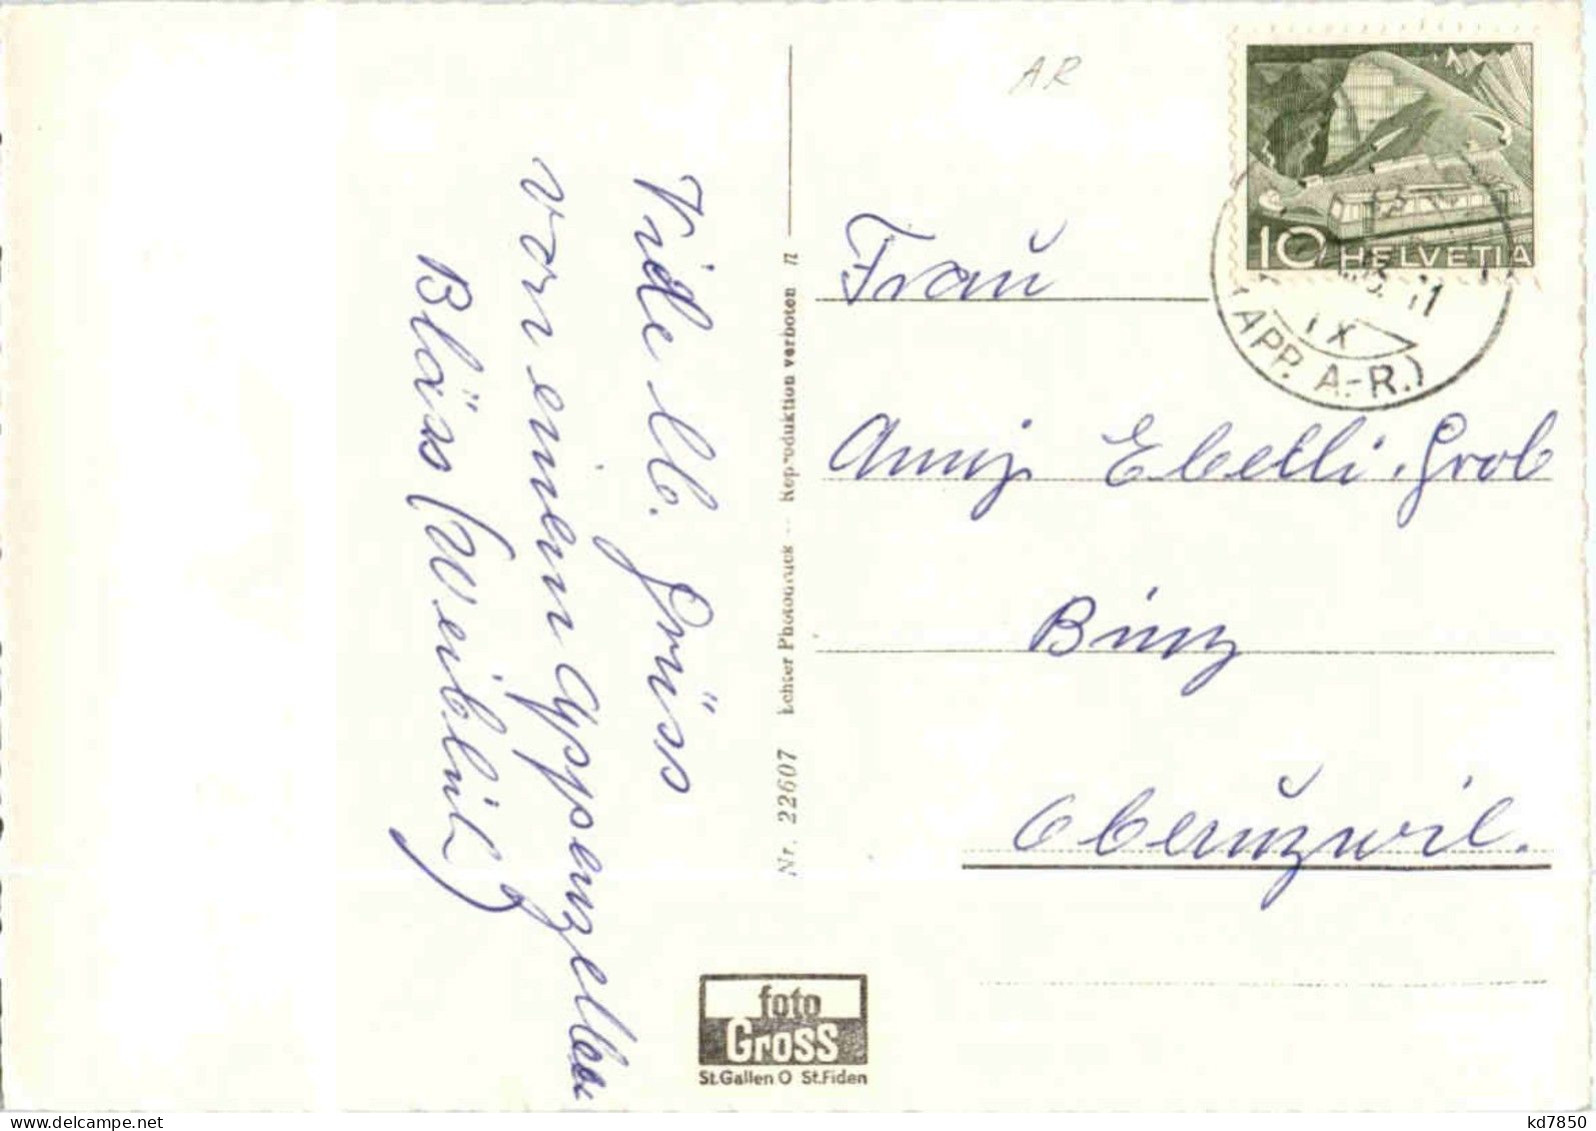 Viele lb. Grüss
von einem Appenzeller
Bläss (Weiblich)
Nr. 22607 Echter Photodruck -- Reproduktion verboten
AR
10 HELVETIA
11
IX
(APP. A.-R.)
Frau
Anny Ebelli-Grob
Binz
Oberuzwil.
foto
Gross
St.Gallen O St.Fiden
kd7850